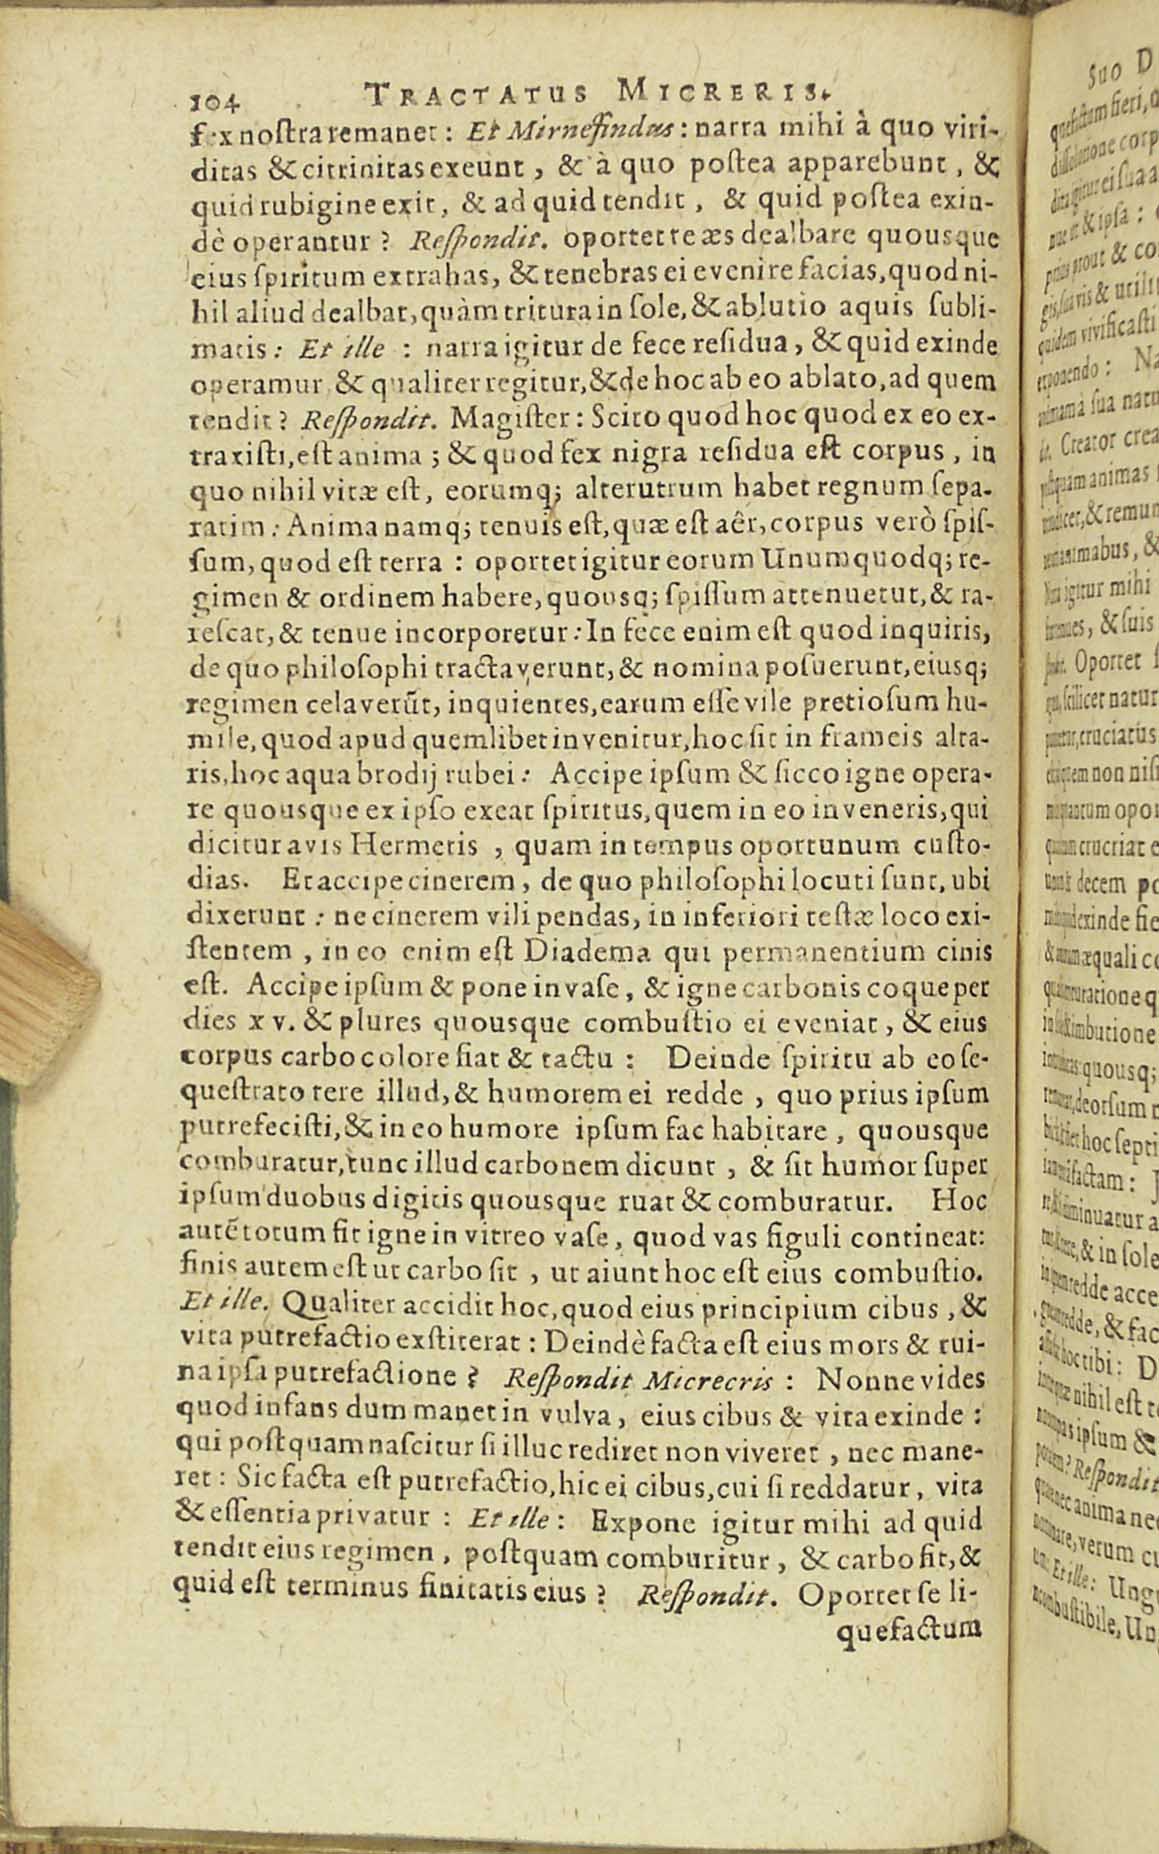 104 TRACTATUS MICRERIS.
fex nostra remanet: Et Mirnefindus: narra mihi à quo viri-
ditas & citrinitas exeunt, & à quo postea apparebunt, &
quid rubigine exit, & ad quid tendit, & quid postea exin-
dè operantur? Respondit. oportet te æs dealbare quousque
eius spiritum extrahas, & tenebras ei evenire facias, quod ni-
hil aliud dealbat, quàm tritura in sole, & ablutio aquis subli-
matis: Et ille: narra igitur de fece residua, & quid exinde
operamur & qualiter regitur, & de hoc ab eo ablato, ad quem
tendit? Respondit. Magister: Scito quod hoc quod ex eo ex-
traxisti, est anima; & quod fex nigra residua est corpus, in
quo nihil vitæ est, eorumq; alterutrum habet regnum sepa-
ratim: Anima namq; tenuis est, quæ est aêr, corpus verò spis-
sum, quod est terra: oportet igitur eorum Unumquodq; re-
gimen & ordinem habere, quousq; spissum attenuetut, & ra-
rescat, & tenue incorporetur: In fece enim est quod inquiris,
de quo philosophi tractaverunt, & nomina posuerunt, eiusq;
regimen celaverũt, inquientes, earum esse vile pretiosum hu-
mile, quod apud quemlibet invenitur, hoc sit in frameis alta-
ris, hoc aqua brodij rubei: Accipe ipsum & sicco igne opera-
re quousque ex ipso exeat spiritus, quem in eo inveneris, qui
dicitur avis Hermetis, quam in tempus oportunum custo-
dias. Et accipe cinerem, de quo philosophi locuti sunt, ubi
dixerunt: ne cinerem vili pendas, in inferiori testæ loco exi-
stentem, in eo enim est Diadema qui permanentium cinis
est. Accipe ipsum & pone in vase, & igne carbonis coque per
dies xv. & plures quousque combustio ei eveniat, & eius
corpus carbo colore fiat & tactu: Deinde spiritu ab eo se-
questrato tere illud, & humorem ei redde, quo prius ipsum
putrefecisti, & in eo humore ipsum fac habitare, quousque
comburatur, tunc illud carbonem dicunt, & sit humor super
ipsum duobus digitis quousque ruat & comburatur. Hoc
autẽ totum fit igne in vitreo vase, quod vas figuli contineat:
finis autem est ut carbo sit, ut aiunt hoc est eius combustio.
Et ille. Qualiter accidit hoc, quod eius principium cibus, &
vita putrefactio exstiterat: Deindè facta est eius mors & rui-
na ipsa putrefactione? Respondit Micrecris: Nonne vides
quod infans dum manet in vulva, eius cibus & vita exinde:
qui postquam nascitur si illuc rediret non viveret, nec mane-
ret: Sic facta est putrefactio, hic ei cibus, cui si reddatur, vita
& essentia privatur: Et ille: Expone igitur mihi ad quid
tendit eius regimen, postquam comburitur, & carbo fit, &
quid est terminus finitatis eius? Respondit. Oportet se li-
quefactum